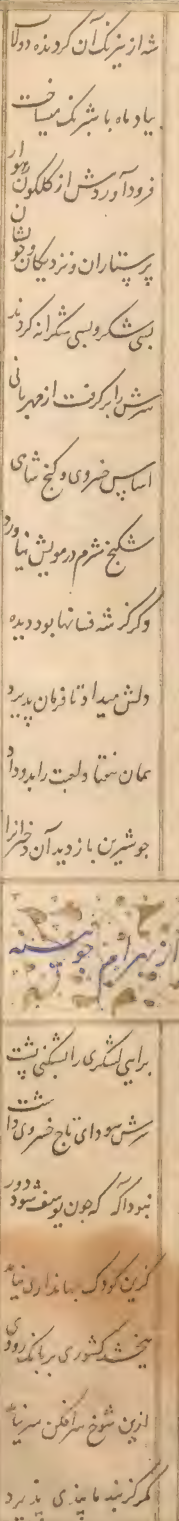 شد از نیرنگ آن گردنده دولاب
بیاد ماه با شبرنگ میساخت
فرود آوردش از گلگون رهوار
پرستاران و نزدیکان و خویشان
بسی شکر و بسی شکرانه کردند
سرش را برگرفت از مهربانی
اساس خسروی و گنج شاهی
شکنج شرم در مویش نیاورد
وگر گذشته فسانها بود دیده
دلش میداد تا فرمان پذیرد
همان هفتاد لعبت را بدو داد
چو شیرین بازدید آن دختران را
از بهرام چوبینه
برایی لشکری را بشکنی پشت
سرش سودای تاج خسروی داشت
نبود آگه که چون یوسف شود دور
کزین کودک جهانداری نیاید
ببخشد کشوری بر بانگ رودی
ازین شوخ سرافکن سر نیابد
کمر گر بند ما پندی پذیرد